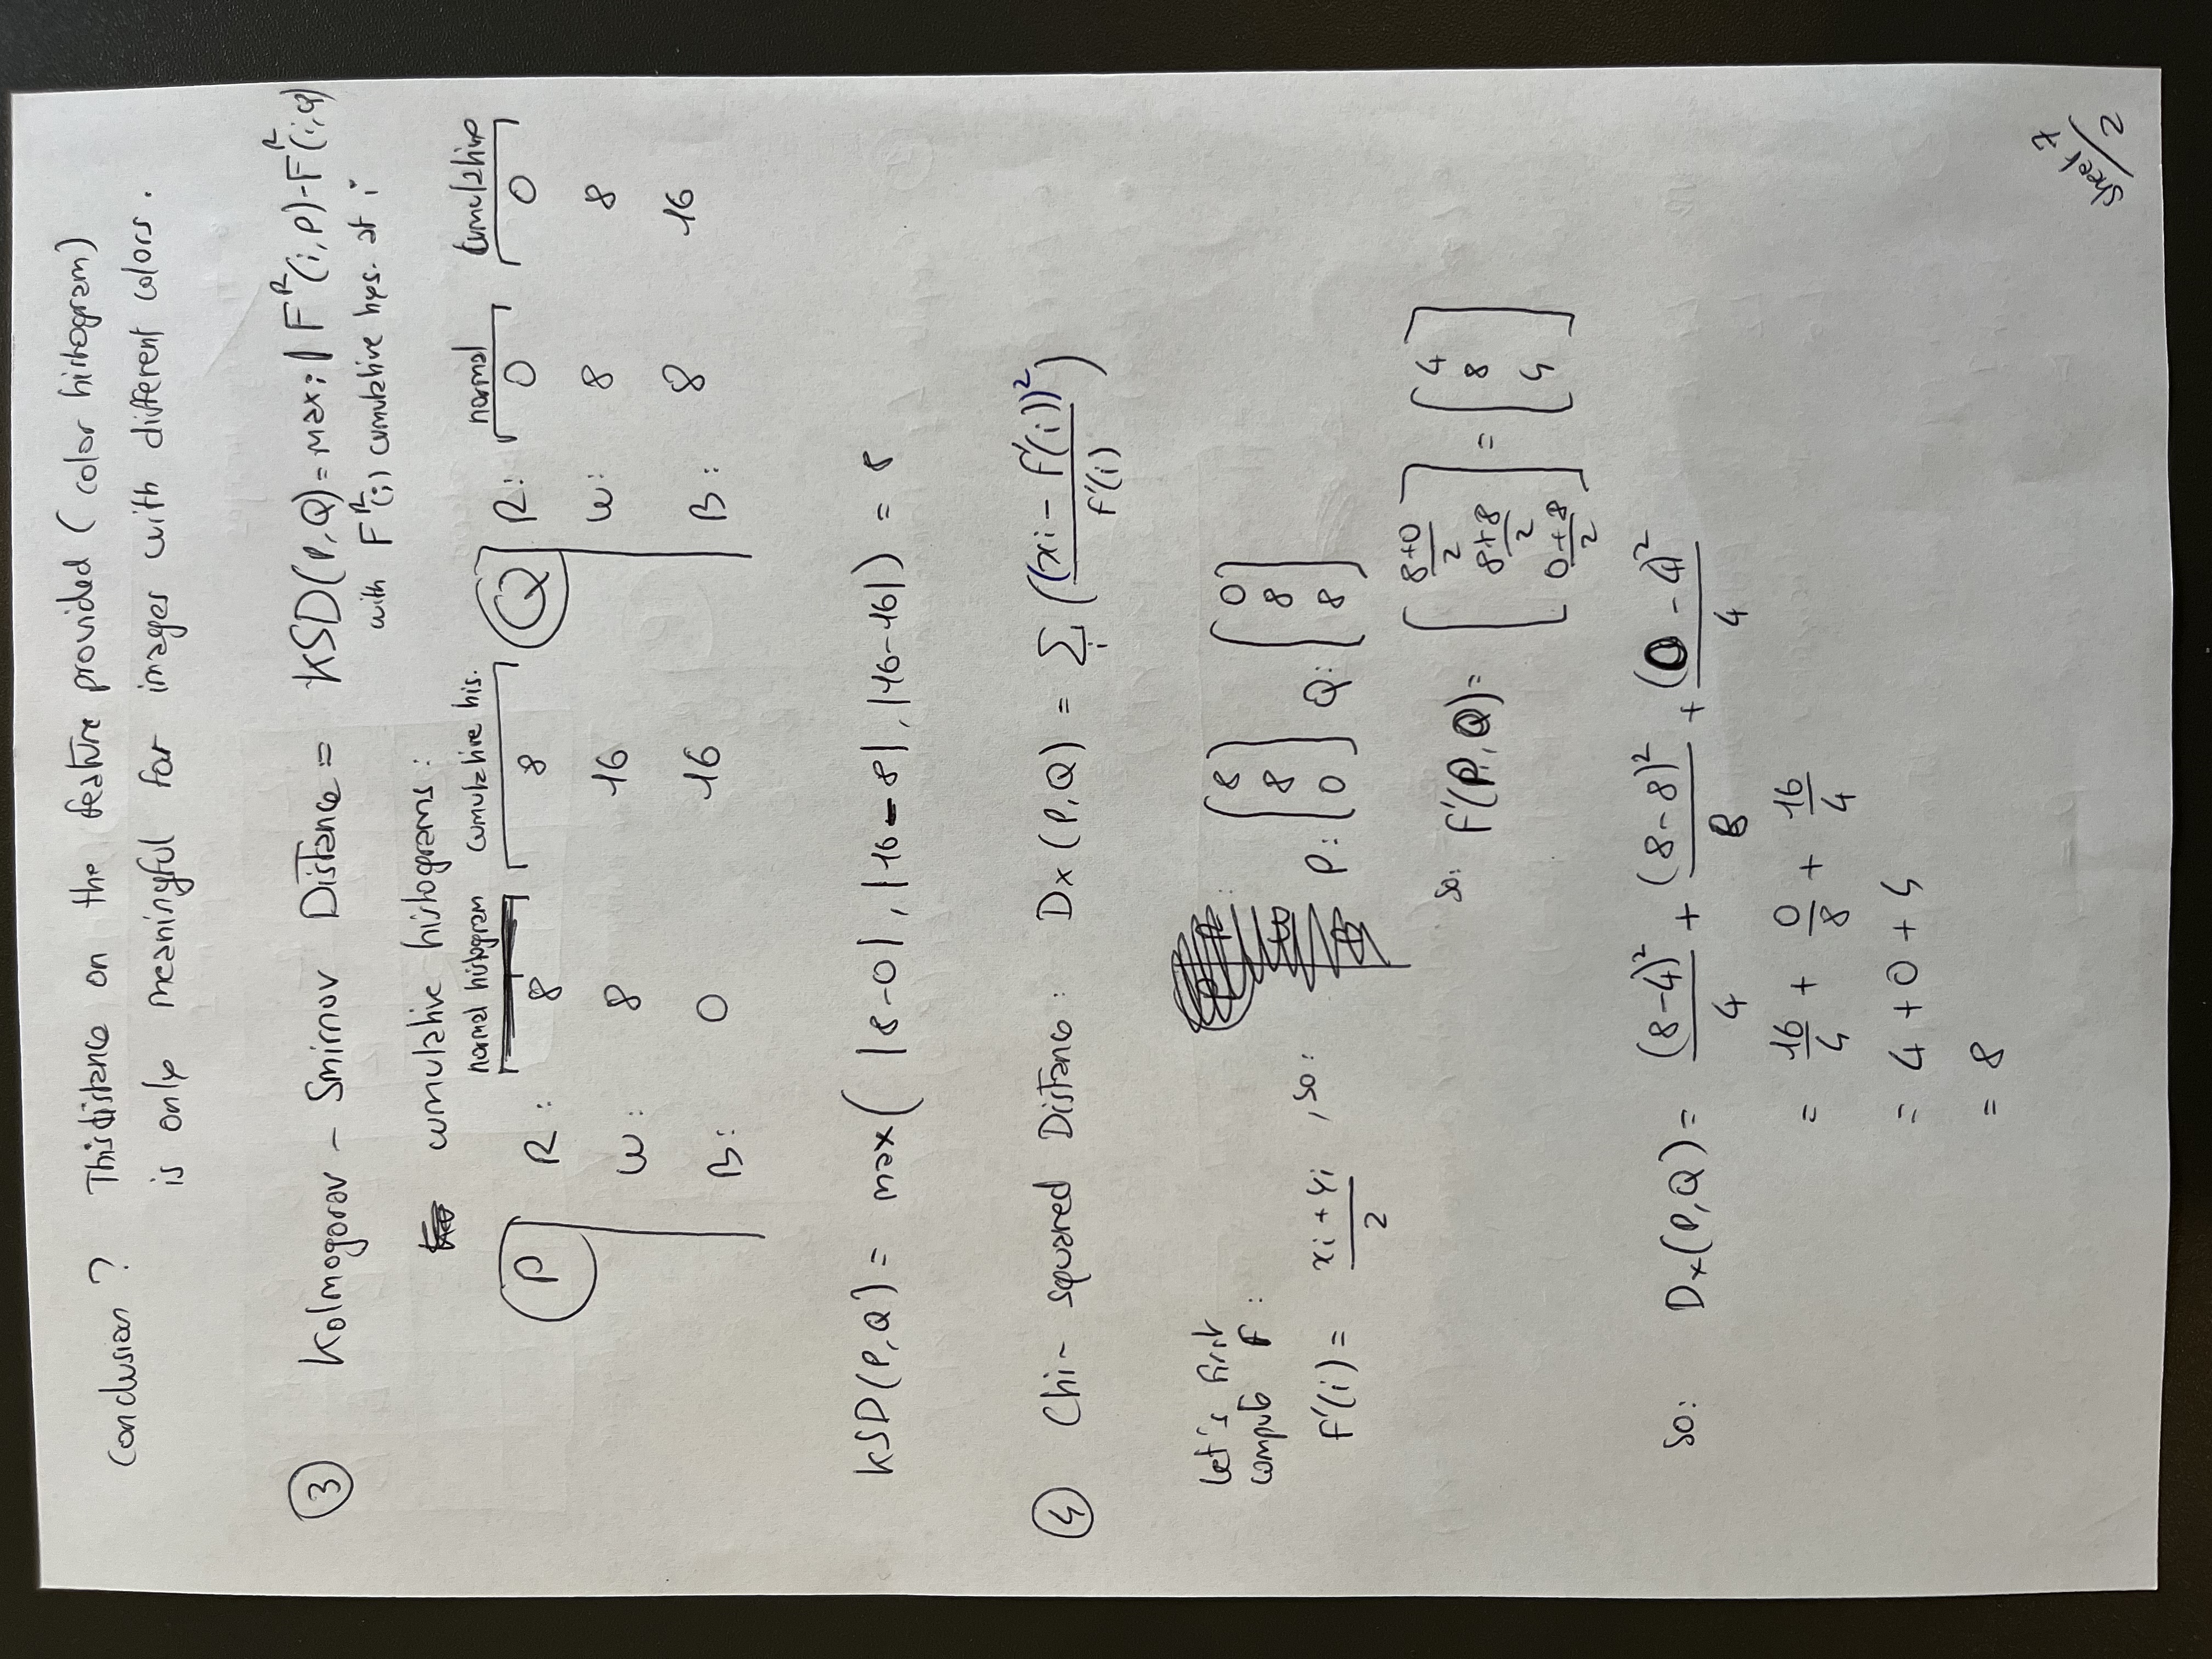 Conclusion ? This distance on the feature provided ( color histogram)
is only meaningful for images with different colors .
③ Kolmogorov - Smirnov Distance = KSD(P,Q) = max i | F^R(i,P) - F^R(i,Q)
with F^R(i) cumulative hys. at i
cumulative histograms :
normal histogram cumulative his. normal cumulative
P R : 8 8 Q R: 0 0
W : 8 16 W: 8 8
B : 0 16 B : 8 16
KSD(P,Q) = max( |8-0| , |16-8| , |16-16| ) = 8
④ Chi- squared Distance : Dx (P,Q) = Σ_i ( (xi - f'(i))² / f'(i) )
Let's first
compute F :
F'(i) = (xi + yi) / 2 , so : P: [8 8 0] Q: [0 8 8]
So: F'(P,Q) = [(8+0)/2 (8+8)/2 (0+8)/2] = [4 8 4]
So: Dx(P,Q) = (8-4)²/4 + (8-8)²/8 + (0-4)²/4
= 16/4 + 0/8 + 16/4
= 4 + 0 + 4
= 8
sheet 7/2